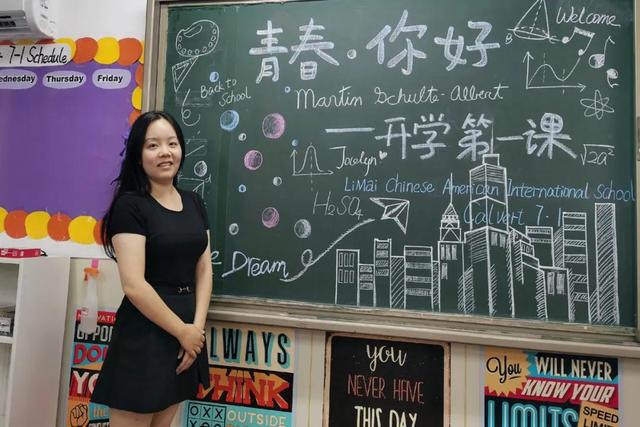 7-1 Schedule
Wednesday Thursday Friday
青春·你好
Welcome
Back to School
Martin Schulte-Albert
——开学第一课
Jocelyn
√2a²
H₂SO₄
LiMai Chinese American International School
Calvert 7.1
Dream
YOU
ALWAYS
THINK
OUTSIDE
you
NEVER HAVE
THIS DAY
You WILL NEVER
KNOW YOUR
LIMITS
SPEED
LIMIT